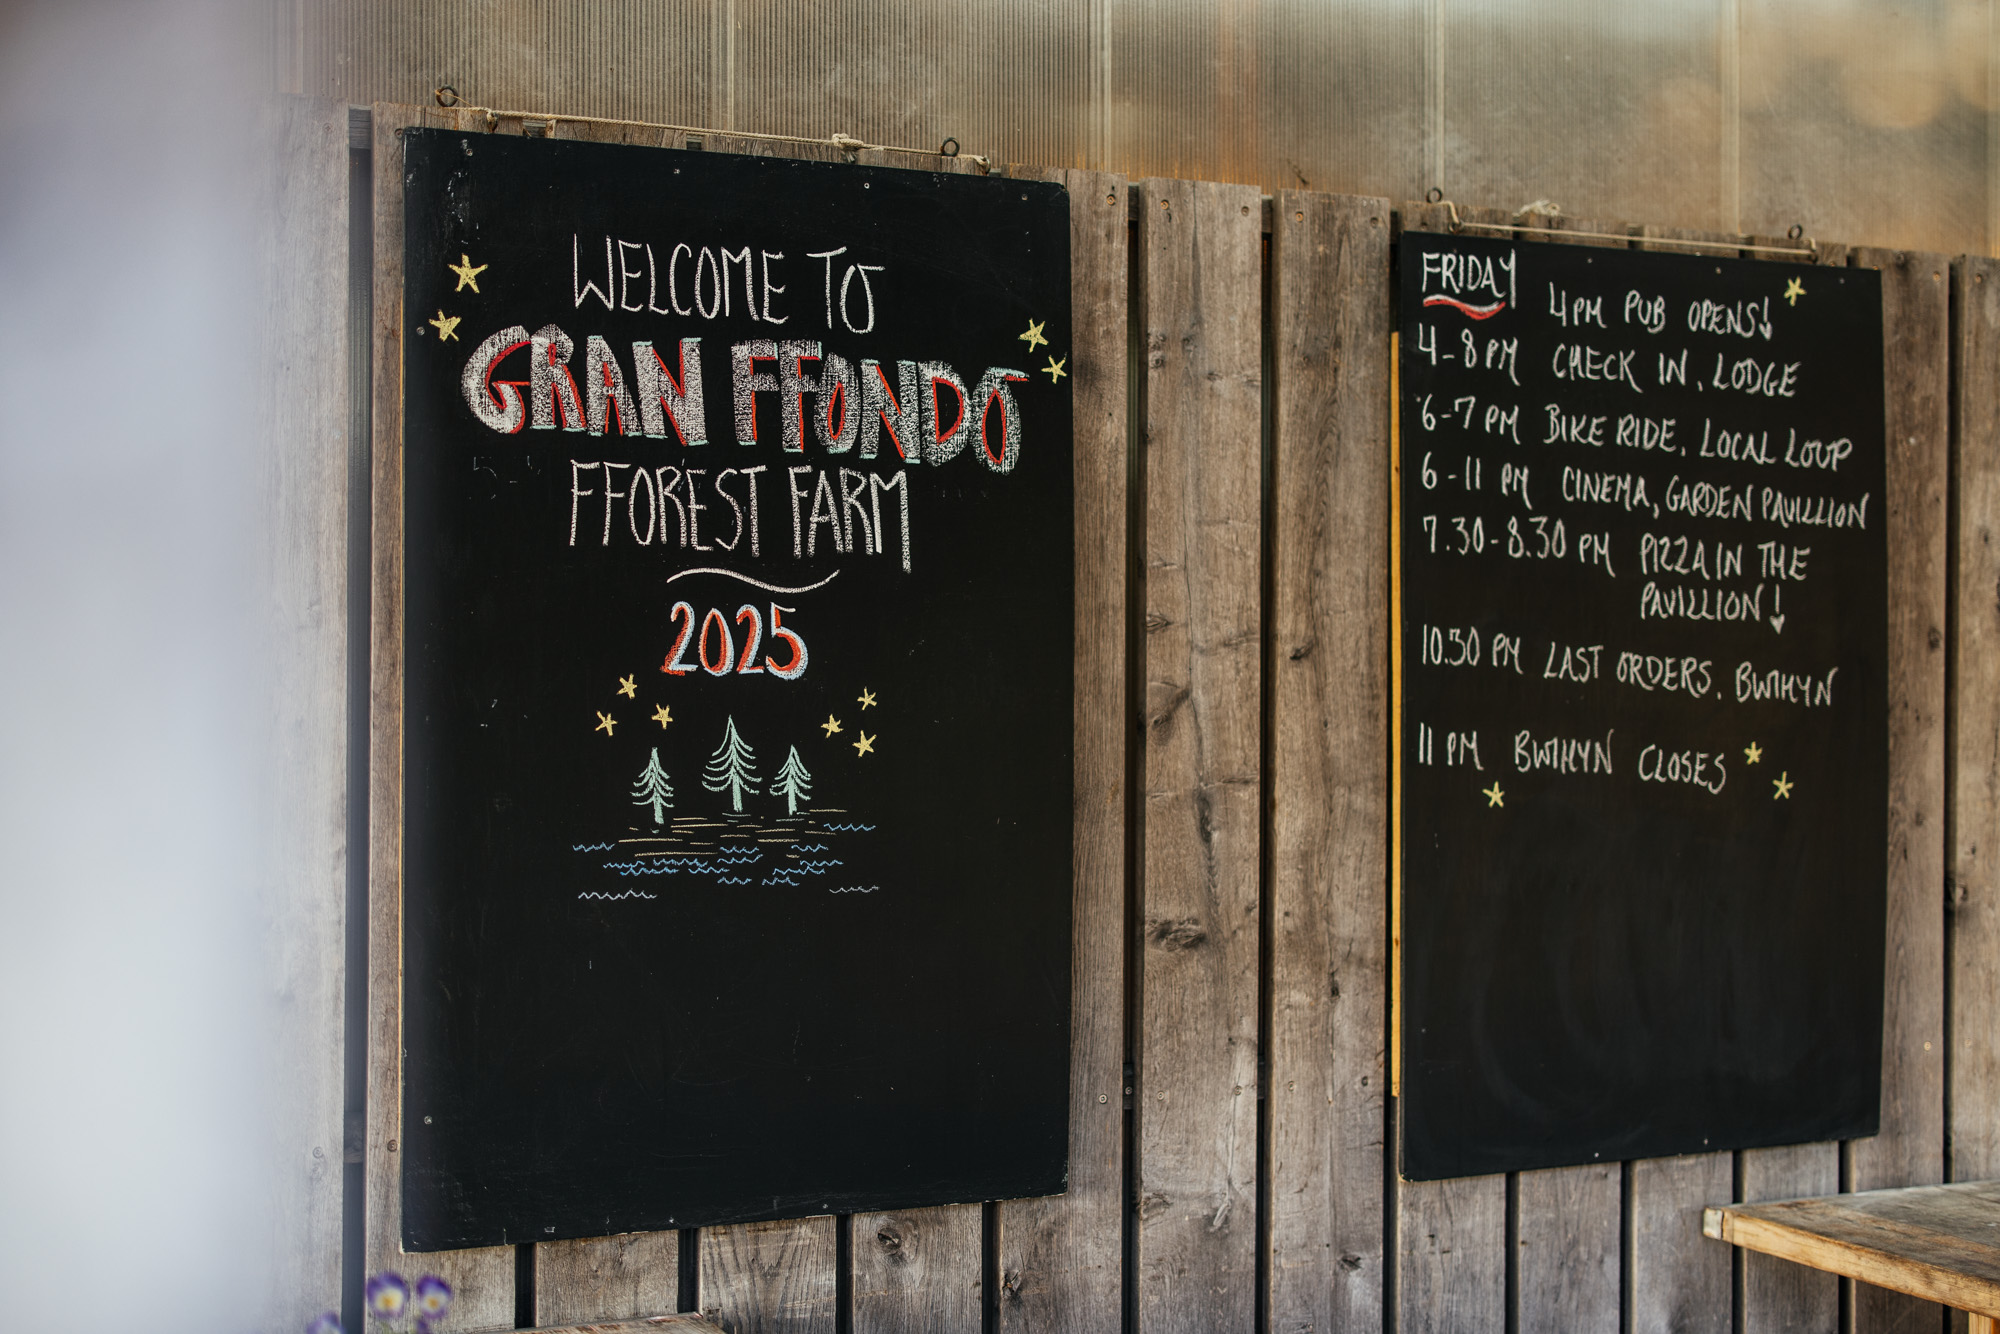 WELCOME TO
GRAN FFONDO
FFOREST FARM
2025
FRIDAY
4PM PUB OPENS!
4-8 PM CHECK IN, LODGE
6-7 PM BIKE RIDE, LOCAL LOOP
6-11 PM CINEMA, GARDEN PAVILLION
7.30-8.30 PM PIZZA IN THE
PAVILLION!
10.30 PM LAST ORDERS, BWTHYN
11 PM BWTHYN CLOSES